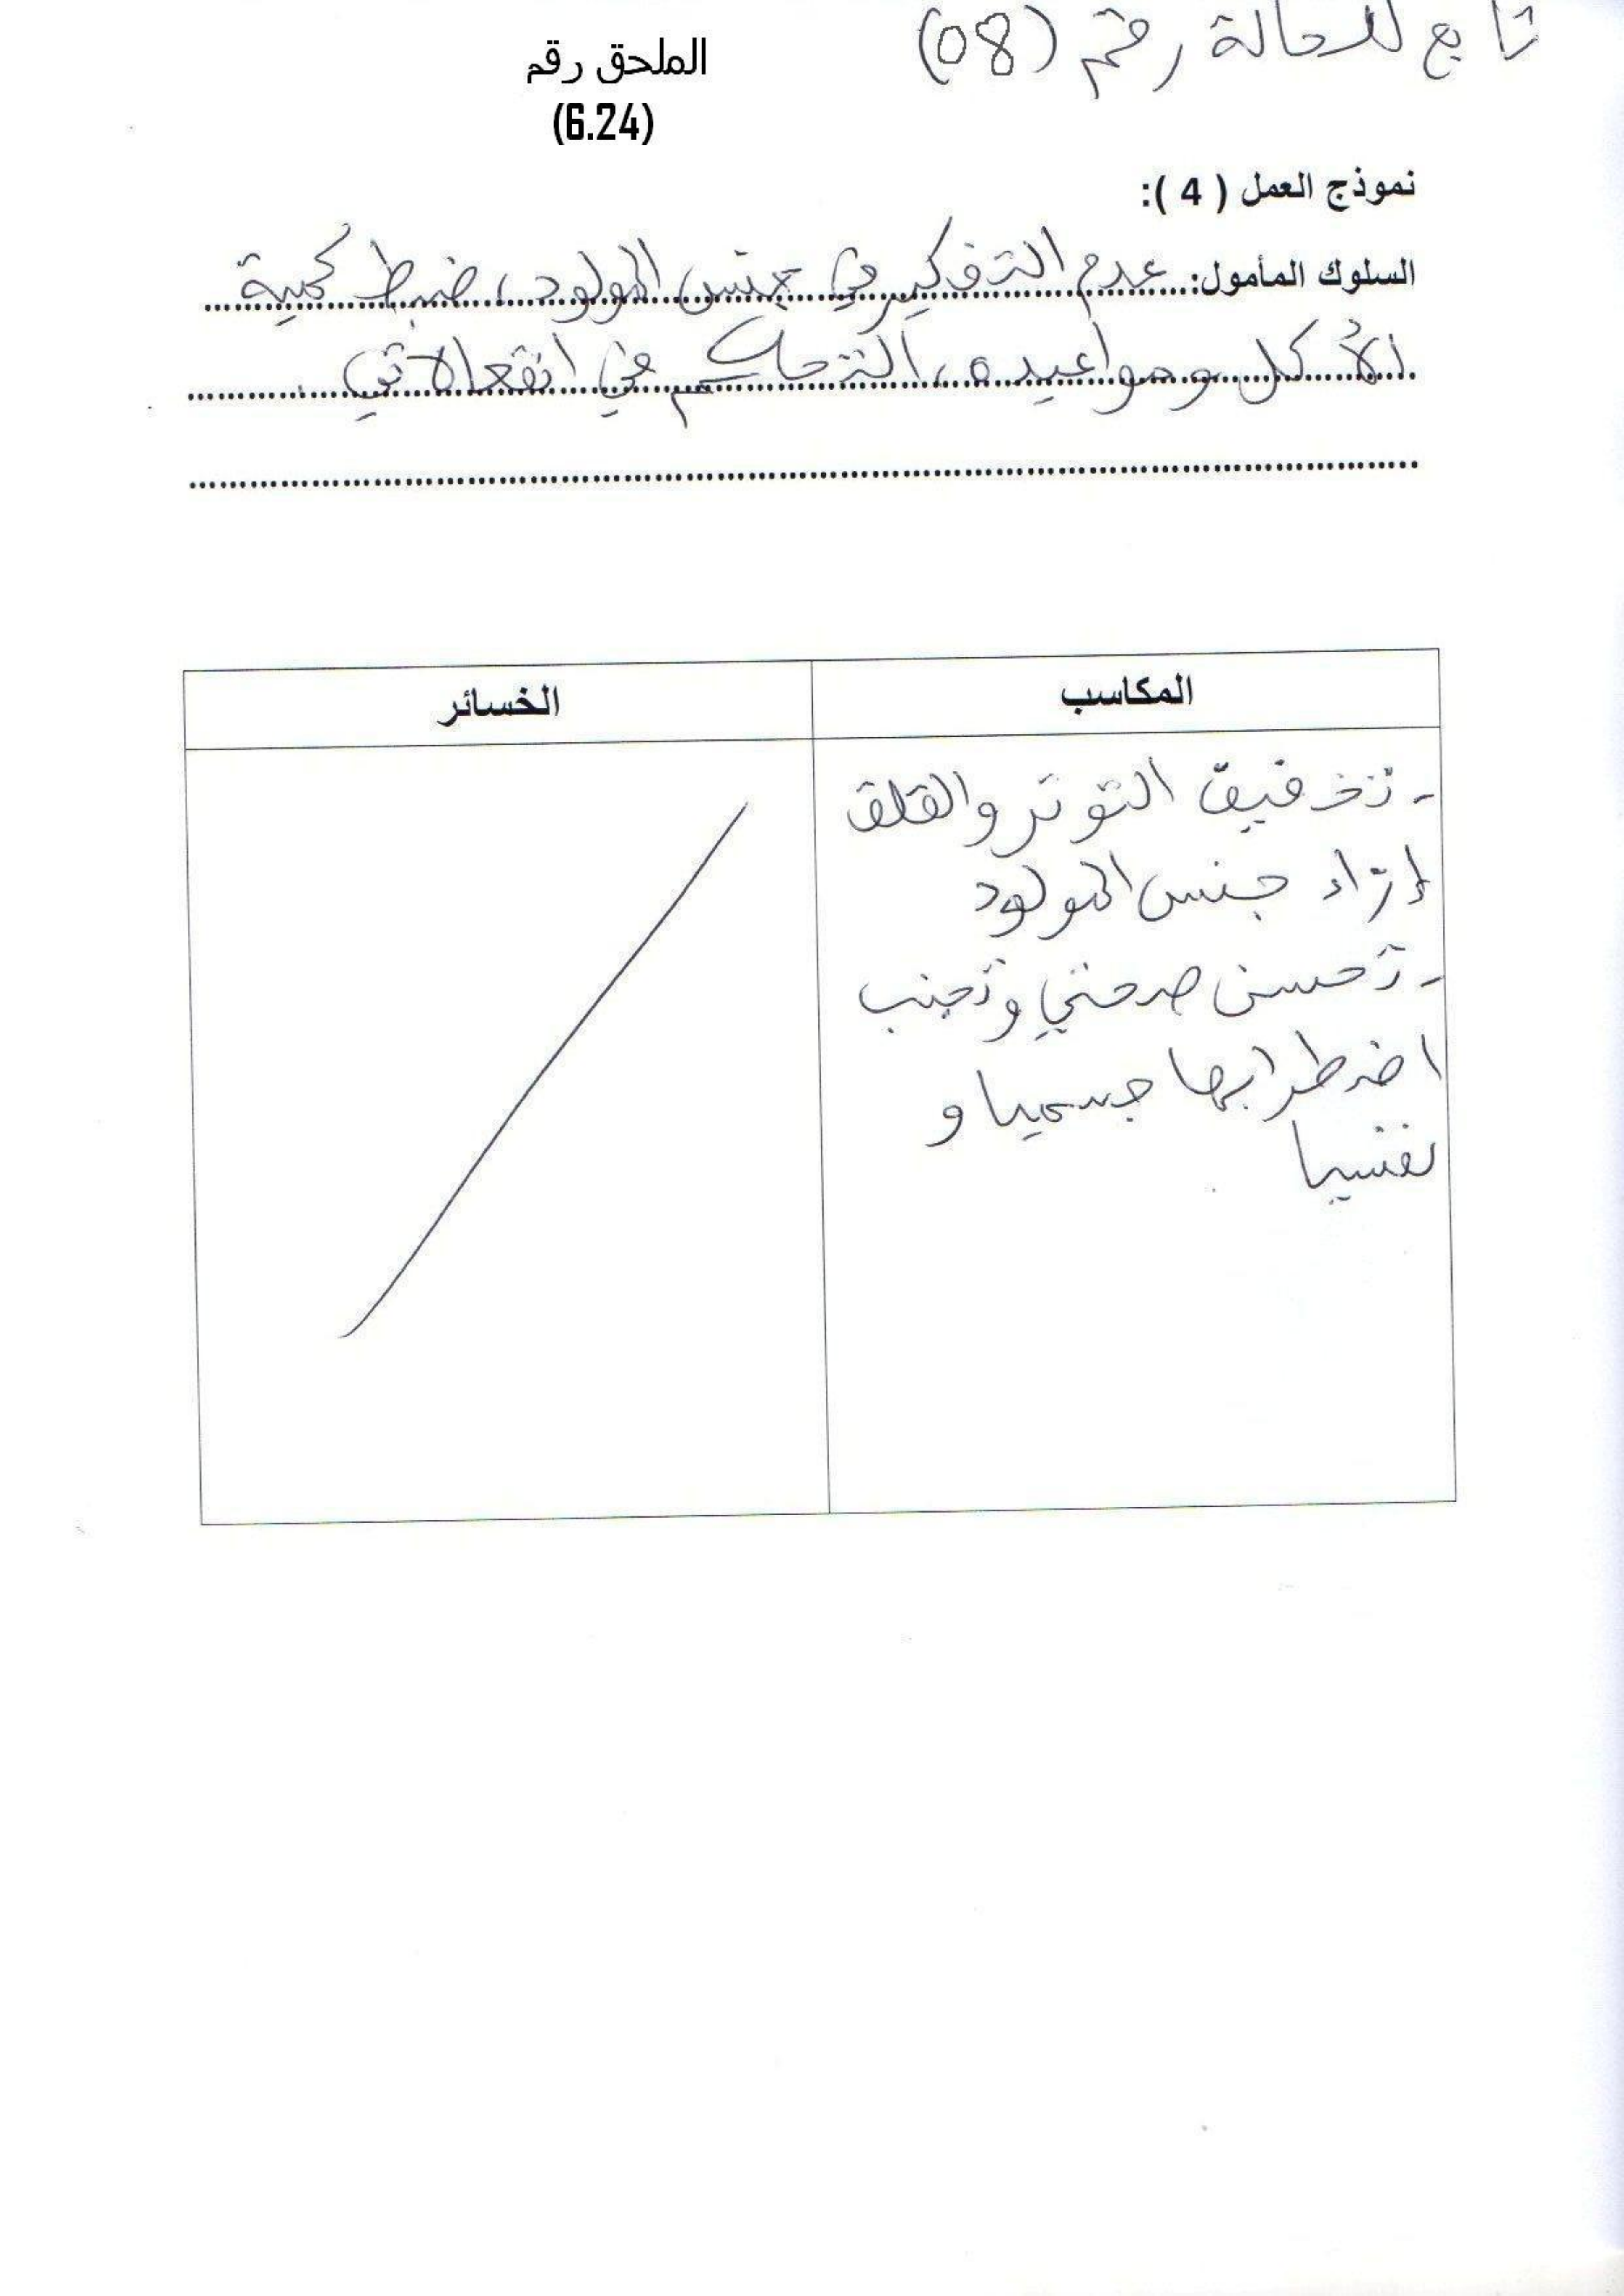 تابع للحالة رقم (08)
الملحق رقم
(6.24)
نموذج العمل ( 4 ):
السلوك المأمول: عدم التفكير في جنس المولود، ضبط كمية
الأكل ومواعيده، التحكم في انفعالاتي.
المكاسب
الخسائر
- تخفيف التوتر والقلق
إزاء جنس المولود
- تحسن صحتي وتجنب
اضطرابها جسميا و
نفسيا.